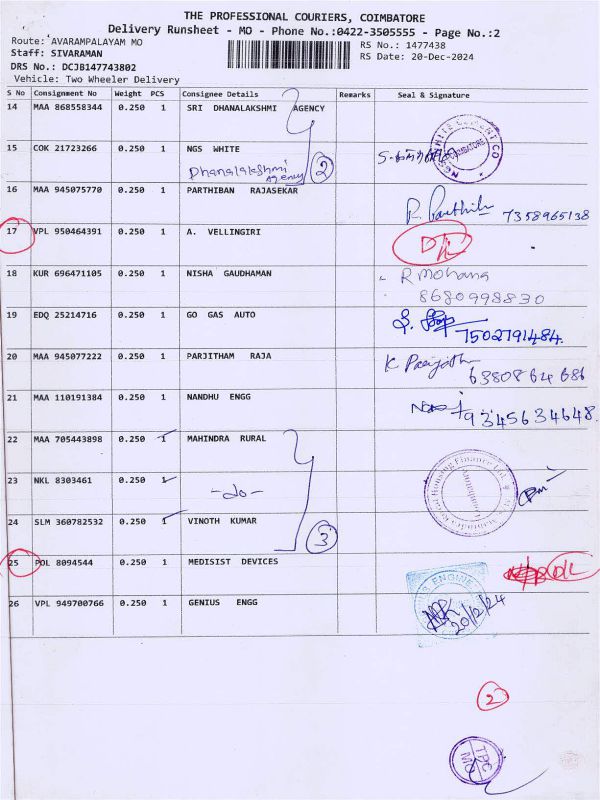 THE PROFESSIONAL COURIERS, COIMBATORE
Delivery Runsheet - MO - Phone No.:0422-3505555 - Page No.:2
Route: AVARAMPALAYAM MO
RS No.: 1477438
Staff: SIVARAMAN
RS Date: 20-Dec-2024
DRS No.: DCJB147743802
Vehicle: Two Wheeler Delivery
S No Consignment No Weight PCS Consignee Details Remarks Seal & Signature
14 MAA 868558344 0.250 1 SRI DHANALAKSHMI AGENCY
15 COK 21723266 0.250 1 NGS WHITE
Dhanalakshmi Agency 2
16 MAA 945075770 0.250 1 PARTHIBAN RAJASEKAR
R. Parthib 7358965138
17 VPL 950464391 0.250 1 A. VELLINGIRI
18 KUR 696471105 0.250 1 NISHA GAUDHAMAN
R Mohana
8680998830
19 EDQ 25214716 0.250 1 GO GAS AUTO
7502791484.
20 MAA 945077222 0.250 1 PARJITHAM RAJA
6380864686
21 MAA 110191384 0.250 1 NANDHU ENGG
9345634648.
22 MAA 705443898 0.250 1 MAHINDRA RURAL
23 NKL 8303461 0.250 1
-do-
24 SLM 360782532 0.250 1 VINOTH KUMAR
3
25 POL 8094544 0.250 1 MEDISIST DEVICES
26 VPL 949700766 0.250 1 GENIUS ENGG
20/12/24
2
TPC
MO